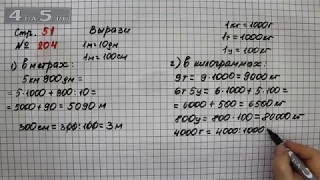 4A5.RU
Стр. 51
№ 204
Вырази
1м = 10дм
1м = 100см
1кг = 1000г
1т = 1000кг
1ц = 100кг
1) в метрах:
5км 900дм =
= 5·1000 + 900:10 =
= 5000 + 90 = 5090 м
300см = 300:100 = 3 м
2) в килограммах:
9т = 9·1000 = 9000 кг
6т 5ц = 6·1000 + 5·100 =
= 6000 + 500 = 6500 кг
800ц = 800·100 = 80000 кг
4000г = 4000:1000